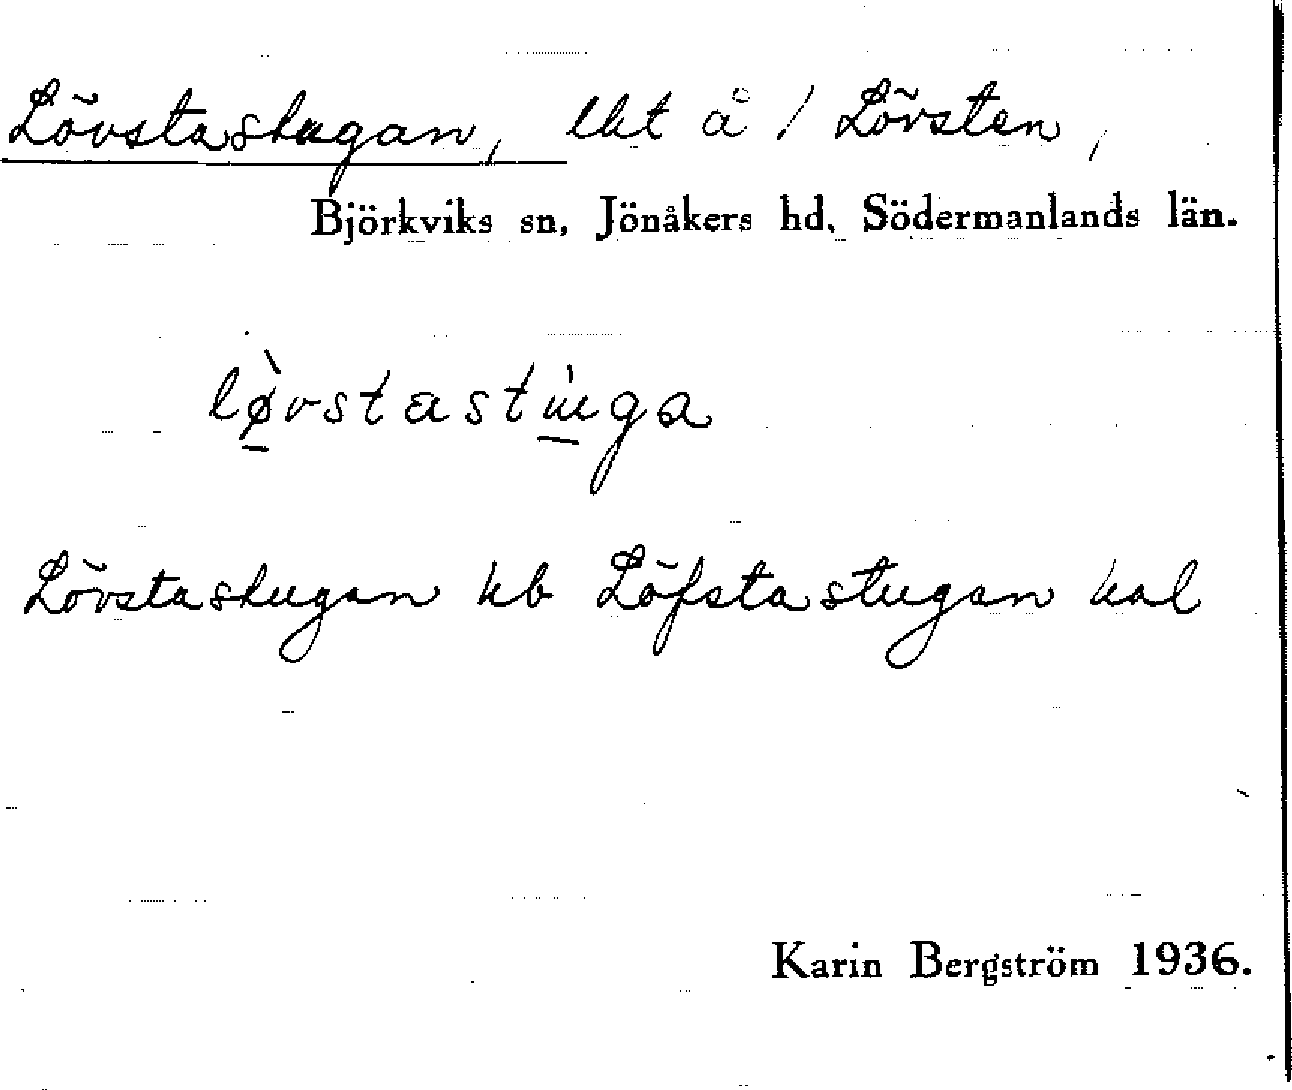 Lövstastugan, lht å / Lövsten,
Björkviks sn, Jönåkers hd, Södermanlands län.
lø̀vstastùga
Lövstastugan hb Löfstastugan hal
Karin Bergström 1936.